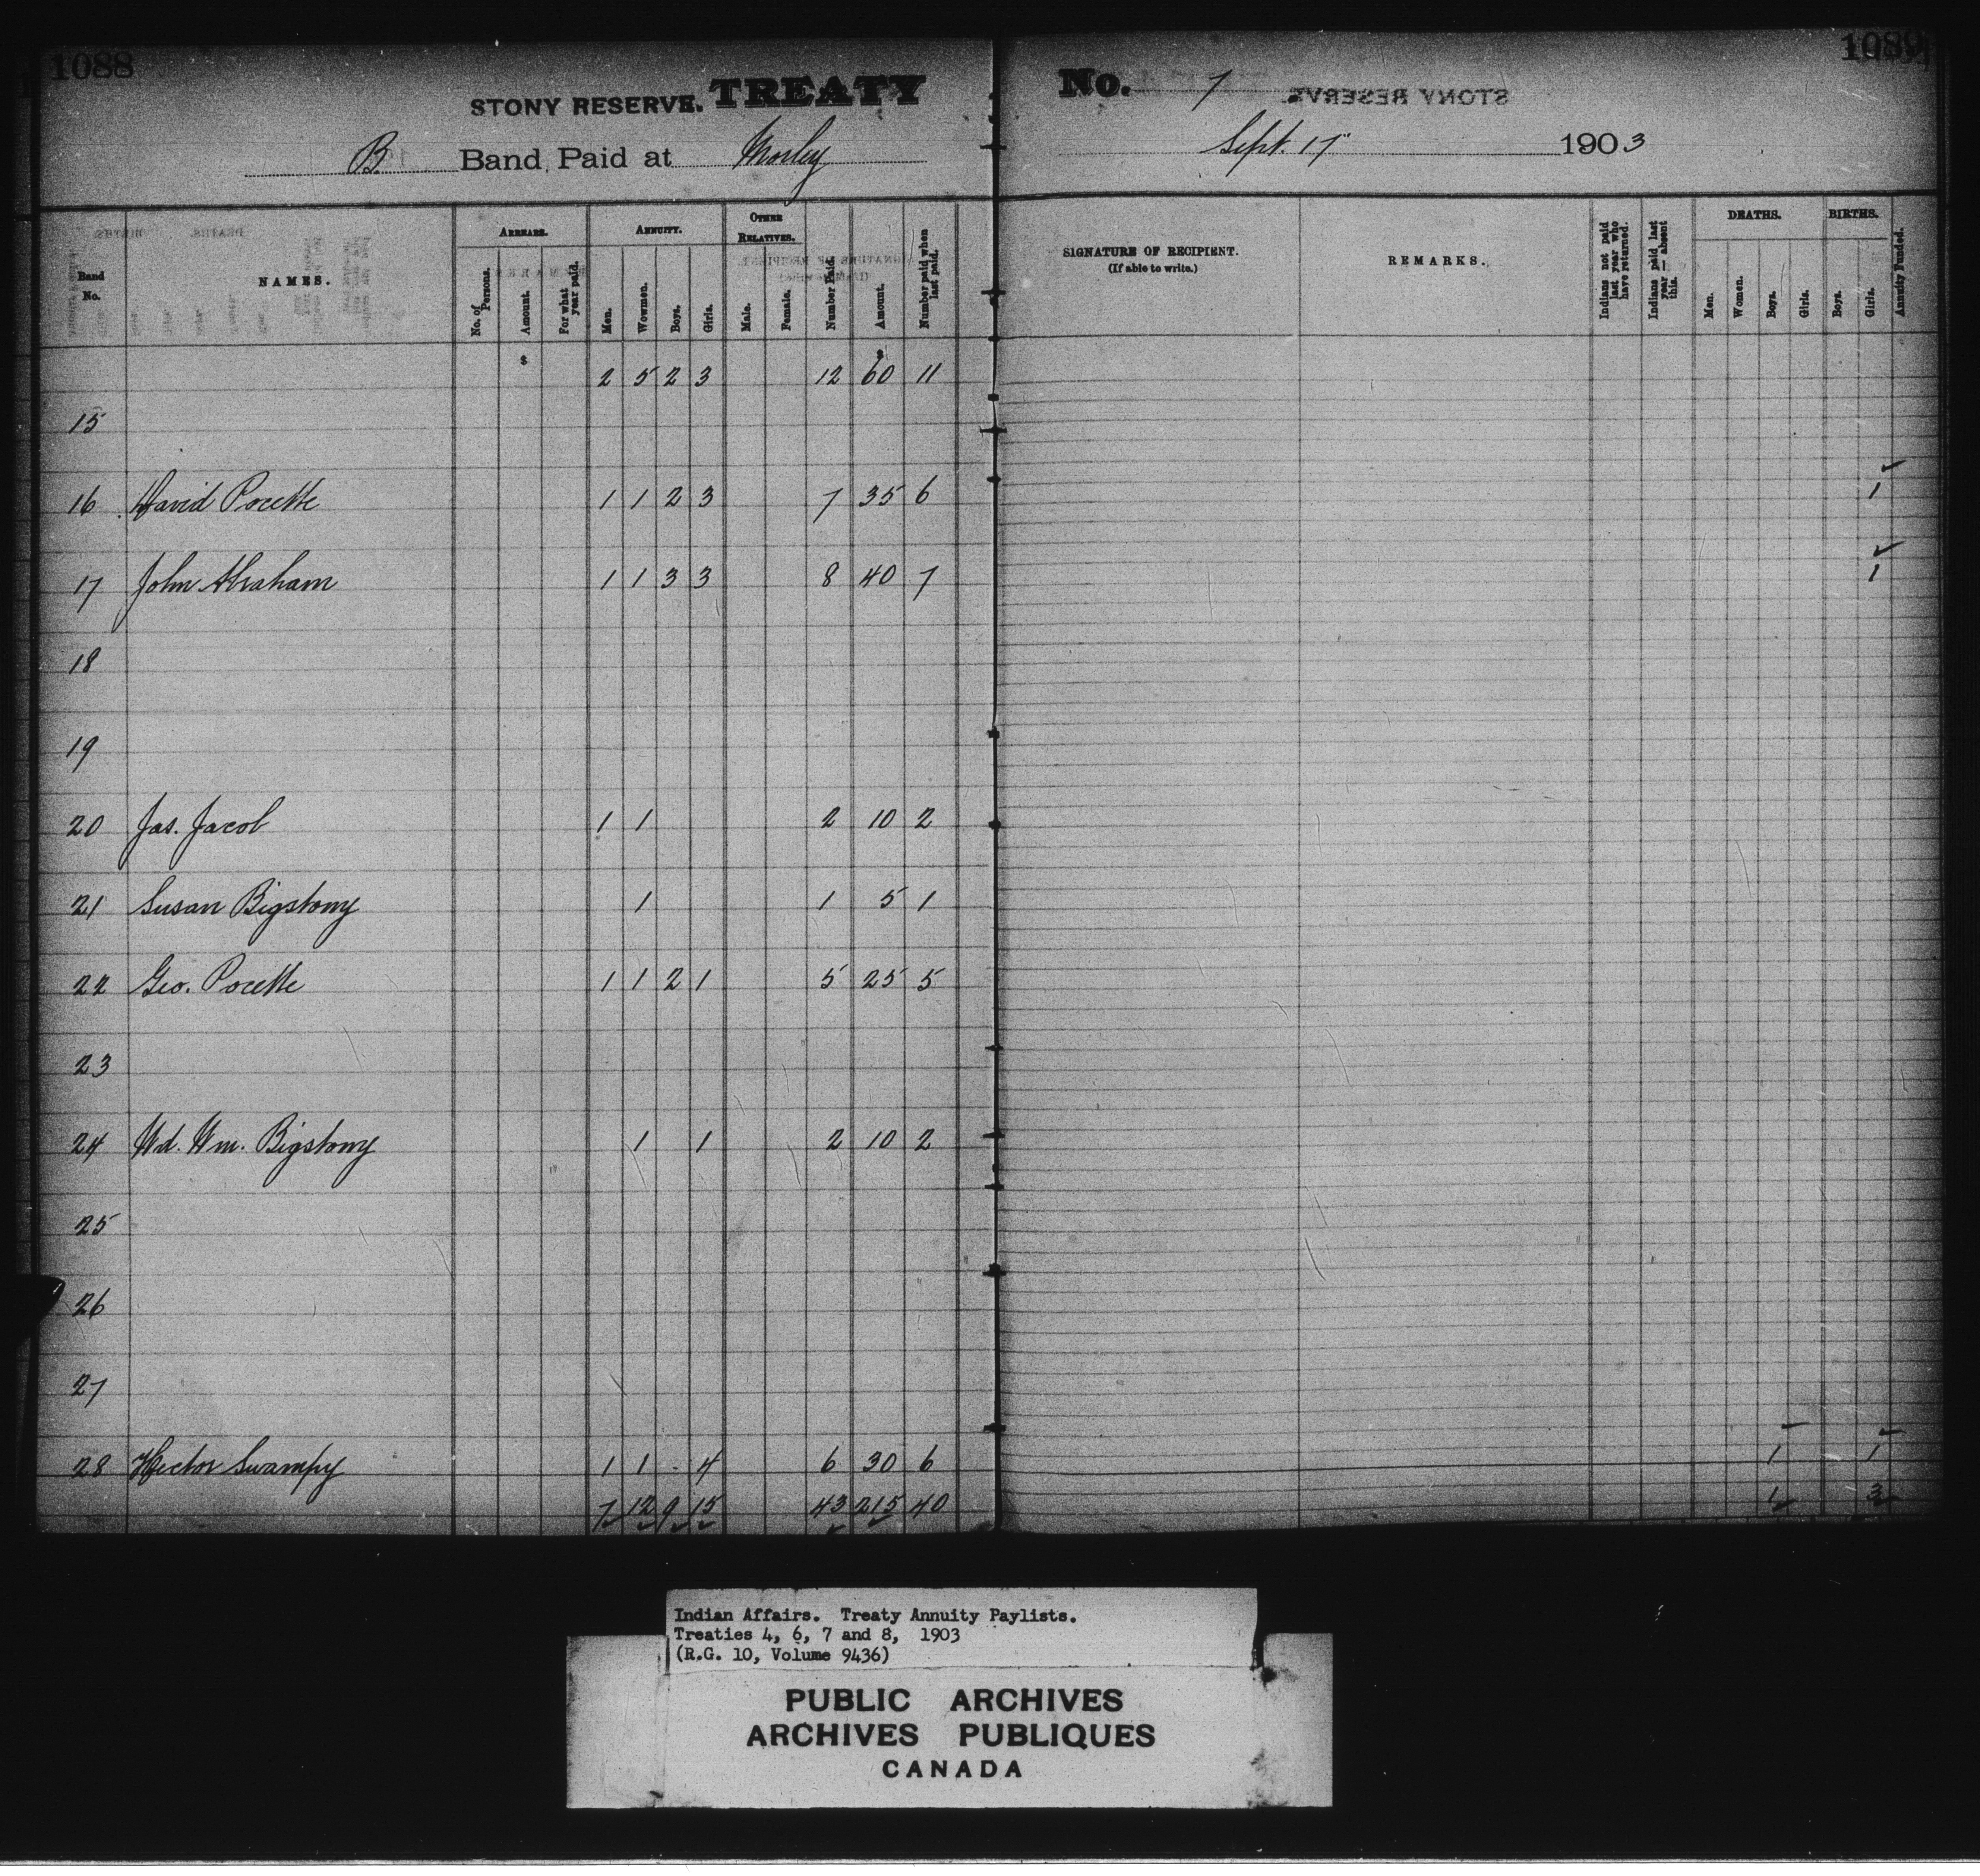 1088
1089
STONY RESERVE. TREATY No. 7
B. Band Paid at Morley Sept. 17 1903
Band No.
NAMES.
ARREARS.
No. of Persons.
Amount.
For what year paid.
ANNUITY.
Men.
Women.
Boys.
Girls.
OTHER RELATIVES.
Male.
Female.
Number Paid.
Amount.
Number paid when last paid.
SIGNATURE OF RECIPIENT.
(If able to write.)
REMARKS.
Indians not paid last year who have returned.
Indians paid last year — absent this.
DEATHS.
Men.
Women.
Boys.
Girls.
BIRTHS.
Boys.
Girls.
Annuity Funded.
$ $
2 5 2 3 12 60 11
15
16 David Pocette 1 1 2 3 7 35 6 1
17 John Abraham 1 1 3 3 8 40 7 1
18
19
20 Jas. Jacob 1 1 2 10 2
21 Susan Bigstony 1 1 5 1
22 Geo. Pocette 1 1 2 1 5 25 5
23
24 Wd. Wm. Bigstony 1 1 2 10 2
25
26
27
28 Hector Swampy 1 1 - 4 6 30 6 1 1
7 12 9 15 43 215 40 1 3
Indian Affairs. Treaty Annuity Paylists.
Treaties 4, 6, 7 and 8, 1903
(R.G. 10, Volume 9436)
PUBLIC ARCHIVES
ARCHIVES PUBLIQUES
CANADA